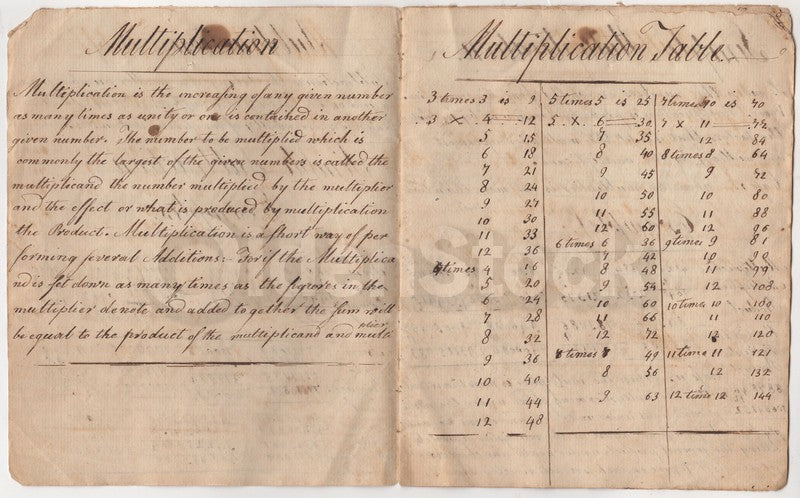 Multiplication
Multiplication is the increasing of any given number
as many times as unity or one is contained in another
given number. The number to be multiplied which is
commonly the largest of the given numbers is called the
multiplicand the number multiplied by the multiplier
and the effect or what is produced by multiplication
the Product. Multiplication is a short way of per
forming several Additions: For if the Multiplica
nd is set down as many times as the figures in the
multiplier denote and added to gether the sum will
be equal to the product of the multiplicand and multi
plier
Multiplication Table
3 times 3 is 9
3 X 4 = 12
5 15
6 18
7 21
8 24
9 27
10 30
11 33
12 36
4 times 4 16
5 20
6 24
7 28
8 32
9 36
10 40
11 44
12 48
5 times 5 is 25
5 X 6 = 30
7 35
8 40
9 45
10 50
11 55
12 60
6 times 6 36
7 42
8 48
9 54
10 60
11 66
12 72
times 49
8 56
9 63
7 times 10 is 70
7 X 11 =
12 84
8 times 8 64
9 72
10 80
11 88
12 96
9 times 9 81
10 90
11 99
12 108
10 times 10 100
11 110
12 120
11 time 11 121
12 132
12 time 12 144